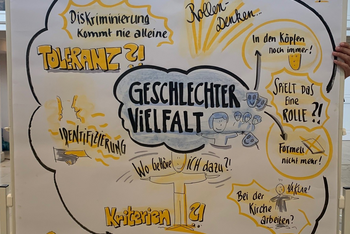 Diskriminierung
kommt nie alleine
TOLERANZ ?!
Rollen-
Denken...
In den Köpfen
noch immer!
SPIELT DAS
EINE
ROLLE ?!
Formell
nicht mehr!
GESCHLECHTER
VIELFALT
IDENTIFIZIERUNG
Wo gehöre ICH dazu?!
Kriterien ?!
Bei der
Kirche
arbeiten?